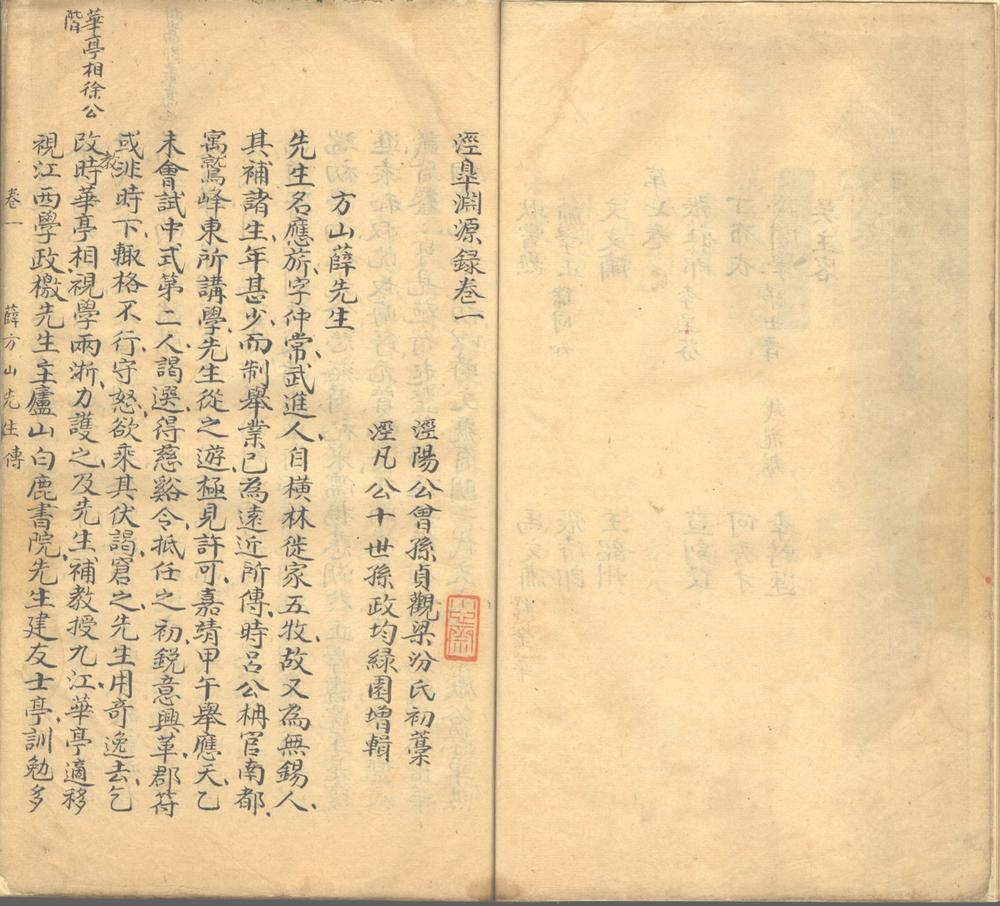 涇臯淵源録卷一
涇陽公曾孫貞觀梁汾氏初藁
涇凡公十世孫政均緑園增輯
方山薛先生
先生名應旂字仲常武進人自橫林徙家五牧故又為無錫人
其補諸生年甚少而制舉業已為遠近所傳時呂公柟官南都
寓鷲峰東所講學先生從之遊極見許可嘉靖甲午舉應天乙
未會試中式第二人謁選得慈谿令抵任之初銳意興革郡符
或非時下輙格不行守怒欲乘其伏謁窘之先生用奇逸去乞
改教時華亭相視學兩浙力護之及先生補教授九江華亭適移
視江西學政檄先生主廬山白鹿書院先生建友士亭訓勉多
華亭相徐公
階
卷一
薛方山先生傳